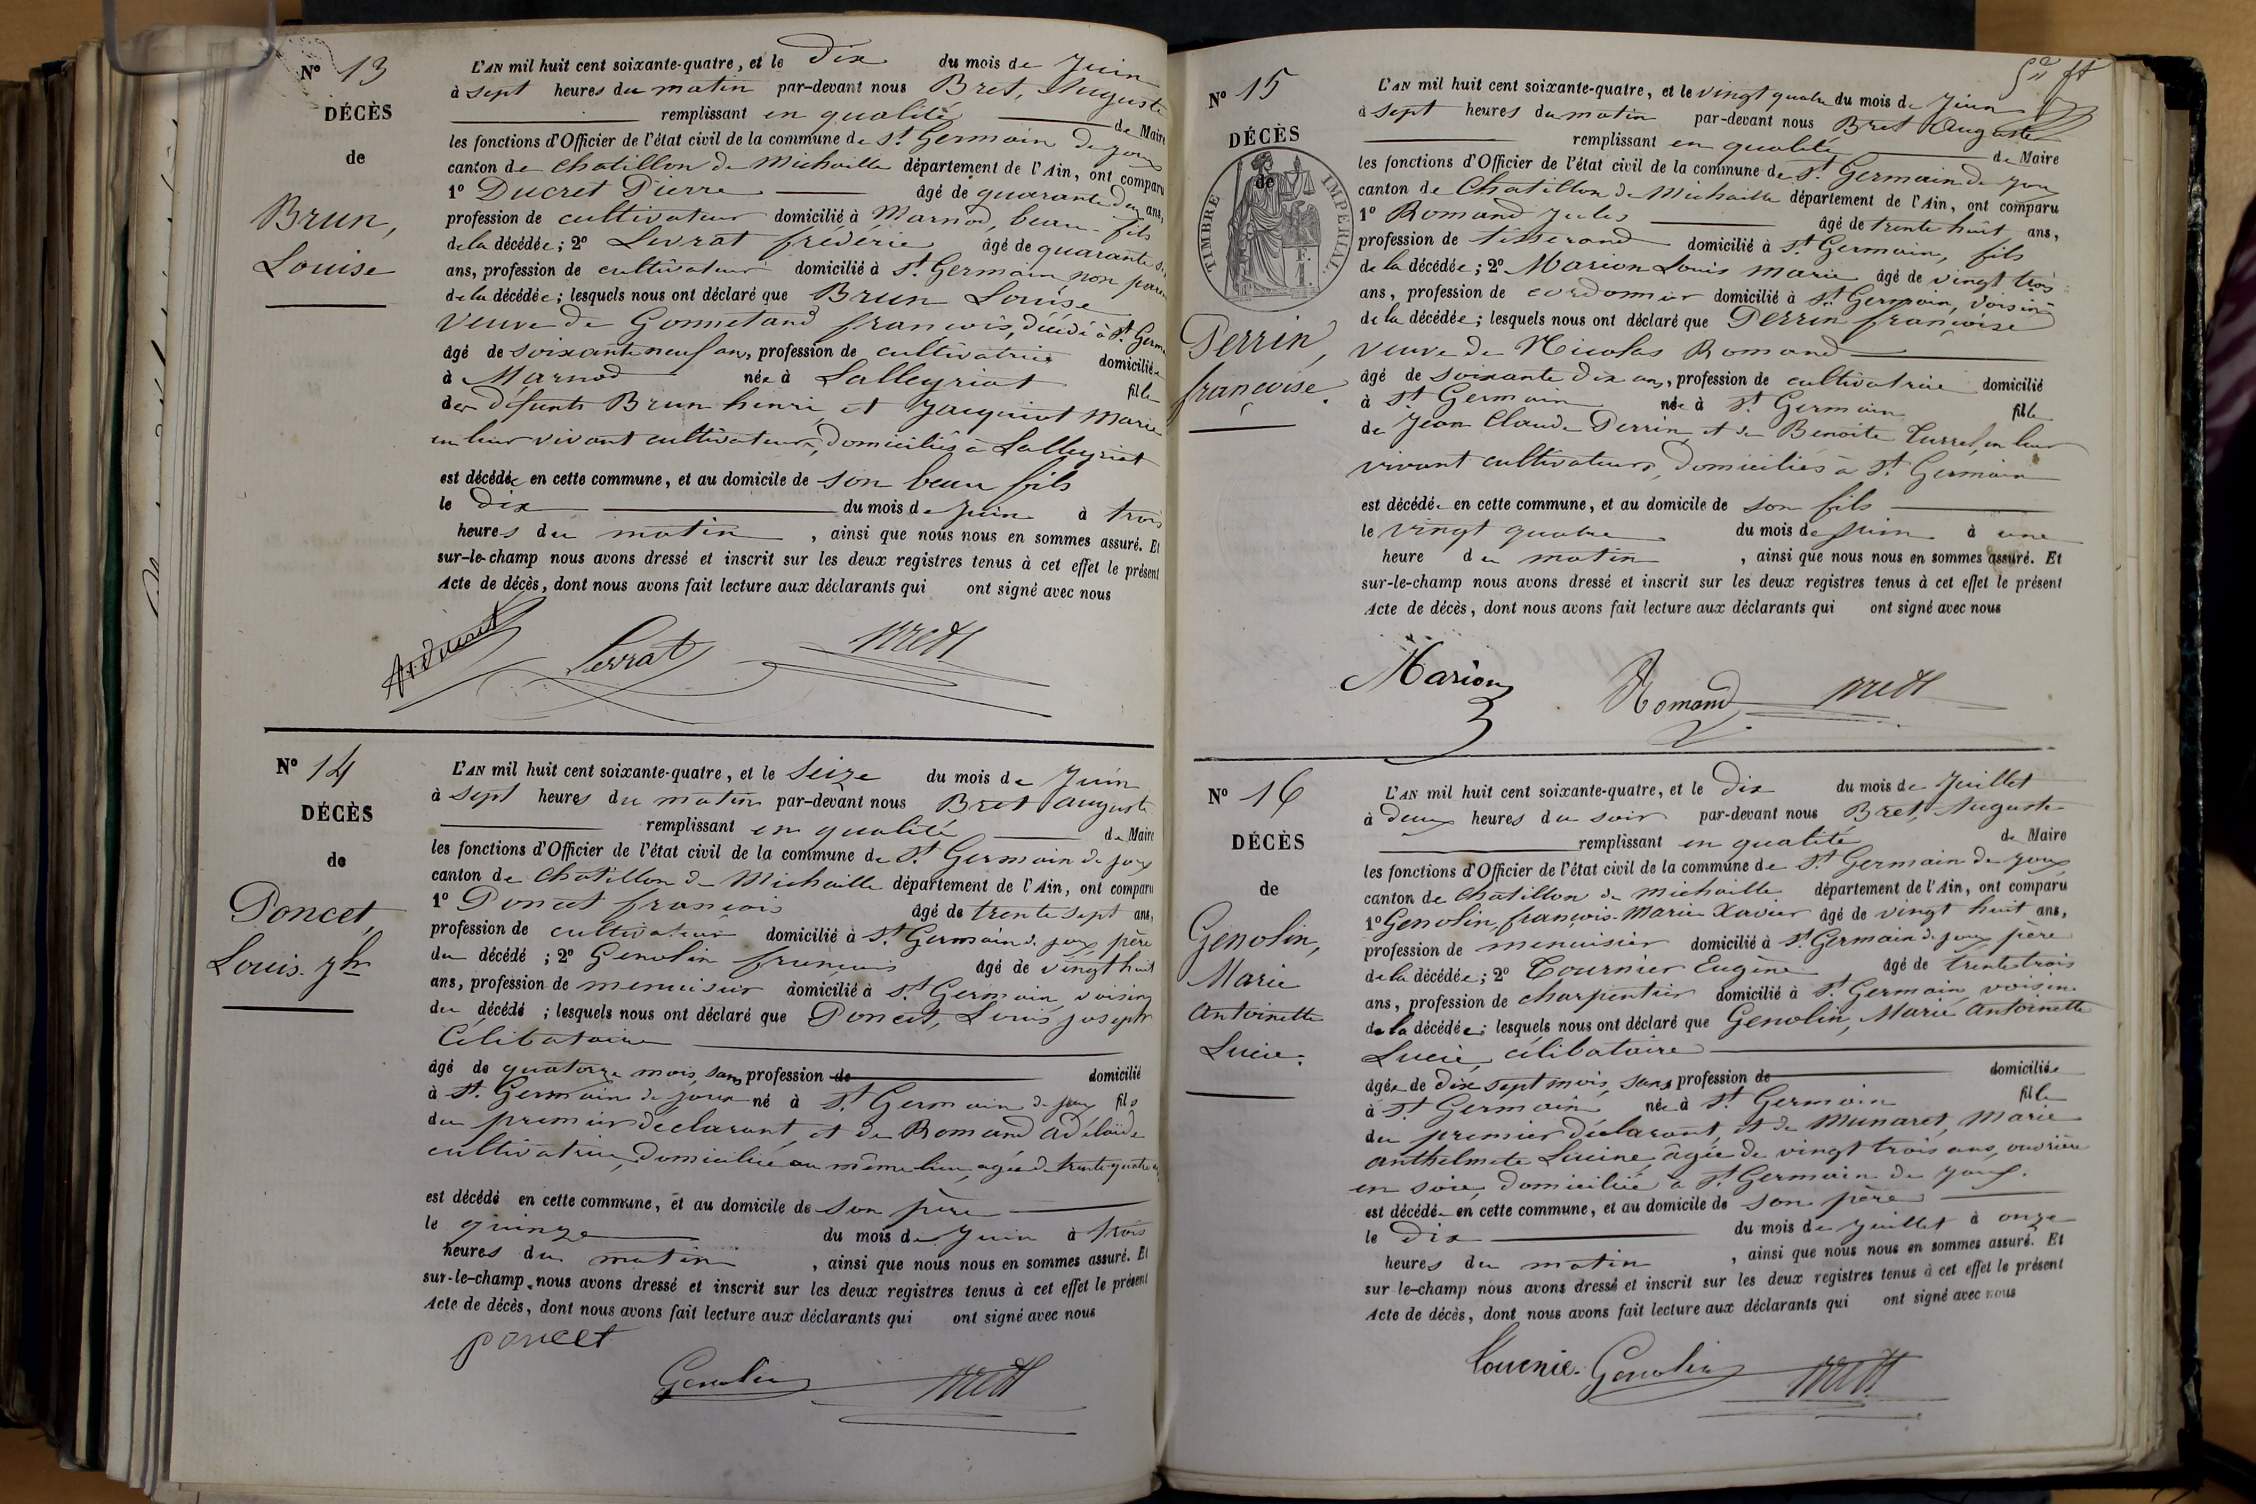 N° 13
DÉCÈS
de
Brun,
Louise
L'AN mil huit cent soixante-quatre, et le dix du mois de Juin
à sept heures du matin par-devant nous Bret, Auguste
remplissant en qualité de Maire
les fonctions d'Officier de l'état civil de la commune de St Germain de Joux
canton de Chatillon de Michaille département de l'Ain, ont comparu
1° Ducret Pierre âgé de quarante deux ans,
profession de cultivateur domicilié à Marnod, beau-fils
de la décédée; 2° Levrat frédéric âgé de quarante
ans, profession de cultivateur domicilié à St Germain, non parent
de la décédée; lesquels nous ont déclaré que Brun Louise
veuve de Gonnetand françois, décédé à St Germ
âgé de soixante neuf ans, profession de cultivatrice domiciliée
à Marnod née à Lalleyriat fille
des défunts Brun henri et Jacquinot Marie
en leur vivant cultivateurs, domiciliés à Lalleyriat
est décédée en cette commune, et au domicile de son beau fils
le dix du mois de Juin à trois
heures du matin, ainsi que nous nous en sommes assuré. Et
sur-le-champ nous avons dressé et inscrit sur les deux registres tenus à cet effet le présent
Acte de décès, dont nous avons fait lecture aux déclarants qui ont signé avec nous
Levrat Bret
N° 14
DÉCÈS
de
Poncet,
Louis Jh
L'AN mil huit cent soixante-quatre, et le seize du mois de Juin
à sept heures du matin par-devant nous Bret auguste
remplissant en qualité de Maire
les fonctions d'Officier de l'état civil de la commune de St Germain de joux
canton de Chatillon de Michaille département de l'Ain, ont comparu
1° Poncet françois âgé de trente sept ans,
profession de cultivateur domicilié à St Germain de joux, père
du décédé; 2° Genolin françois âgé de vingt huit
ans, profession de menuisier domicilié à St Germain, voisin
du décédé; lesquels nous ont déclaré que Poncet, Louis joseph
Célibataire
âgé de quatorze mois, sans profession de domicilié
à St Germain de joux né à St Germain de joux fils
du premier déclarant, et de Romand adélaïde
cultivatrice, domiciliée au même lieu, agée de trente quatre ans
est décédé en cette commune, et au domicile de son père
le quinze du mois de Juin à trois
heures du matin, ainsi que nous nous en sommes assuré. Et
sur-le-champ nous avons dressé et inscrit sur les deux registres tenus à cet effet le présent
Acte de décès, dont nous avons fait lecture aux déclarants qui ont signé avec nous
poncet
Genolin Bret
N° 15
DÉCÈS
de
TIMBRE IMPÉRIAL
Perrin,
françoise.
L'AN mil huit cent soixante-quatre, et le vingt quatre du mois de Juin
à sept heures du matin par-devant nous Bret Auguste
remplissant en qualité de Maire
les fonctions d'Officier de l'état civil de la commune de St Germain de Joux
canton de Chatillon de Michaille département de l'Ain, ont comparu
1° Romand Jules âgé de trente huit ans,
profession de tisserand domicilié à St Germain, fils
de la décédée; 2° Marion Louis Marie âgé de vingt trois
ans, profession de cordonnier domicilié à St Germain, voisin
de la décédée; lesquels nous ont déclaré que Perrin françoise
veuve de Nicolas Romand
âgé de soixante dix ans, profession de cultivatrice domicilié
à St Germain née à St Germain fille
de Jean Claude Perrin et de Benoite Turrel, en leur
vivant cultivateurs, domiciliés à St Germain
est décédée en cette commune, et au domicile de son fils
le vingt quatre du mois de Juin à une
heure du matin, ainsi que nous nous en sommes assuré. Et
sur-le-champ nous avons dressé et inscrit sur les deux registres tenus à cet effet le présent
Acte de décès, dont nous avons fait lecture aux déclarants qui ont signé avec nous
Marion Romand Bret
N° 16
DÉCÈS
de
Genolin,
Marie
Antoinette
Lucie.
L'AN mil huit cent soixante-quatre, et le Dix du mois de Juillet
à deux heures du soir par-devant nous Bret, Auguste
remplissant en qualité de Maire
les fonctions d'Officier de l'état civil de la commune de St Germain de Joux
canton de Chatillon de Michaille département de l'Ain, ont comparu
1° Genolin, françois-Marie Xavier âgé de vingt huit ans,
profession de menuisier domicilié à St Germain de joux père
de la décédée; 2° Tournier Eugène âgé de trente trois
ans, profession de charpentier domicilié à St Germain, voisin
de la décédée; lesquels nous ont déclaré que Genolin, Marie Antoinette
Lucie, célibataire
âgée de dix sept mois, sans profession de domiciliée
à St Germain née à St Germain fille
du premier déclarant et de Munaret, Marie
Anthelmete Lucine, âgée de vingt trois ans, ouvrière
en soie, domiciliée à St Germain de Joux.
est décédée en cette commune, et au domicile de son père
le Dix du mois de Juillet à onze
heures du matin, ainsi que nous nous en sommes assuré. Et
sur-le-champ nous avons dressé et inscrit sur les deux registres tenus à cet effet le présent
Acte de décès, dont nous avons fait lecture aux déclarants qui ont signé avec nous
Genolin Bret